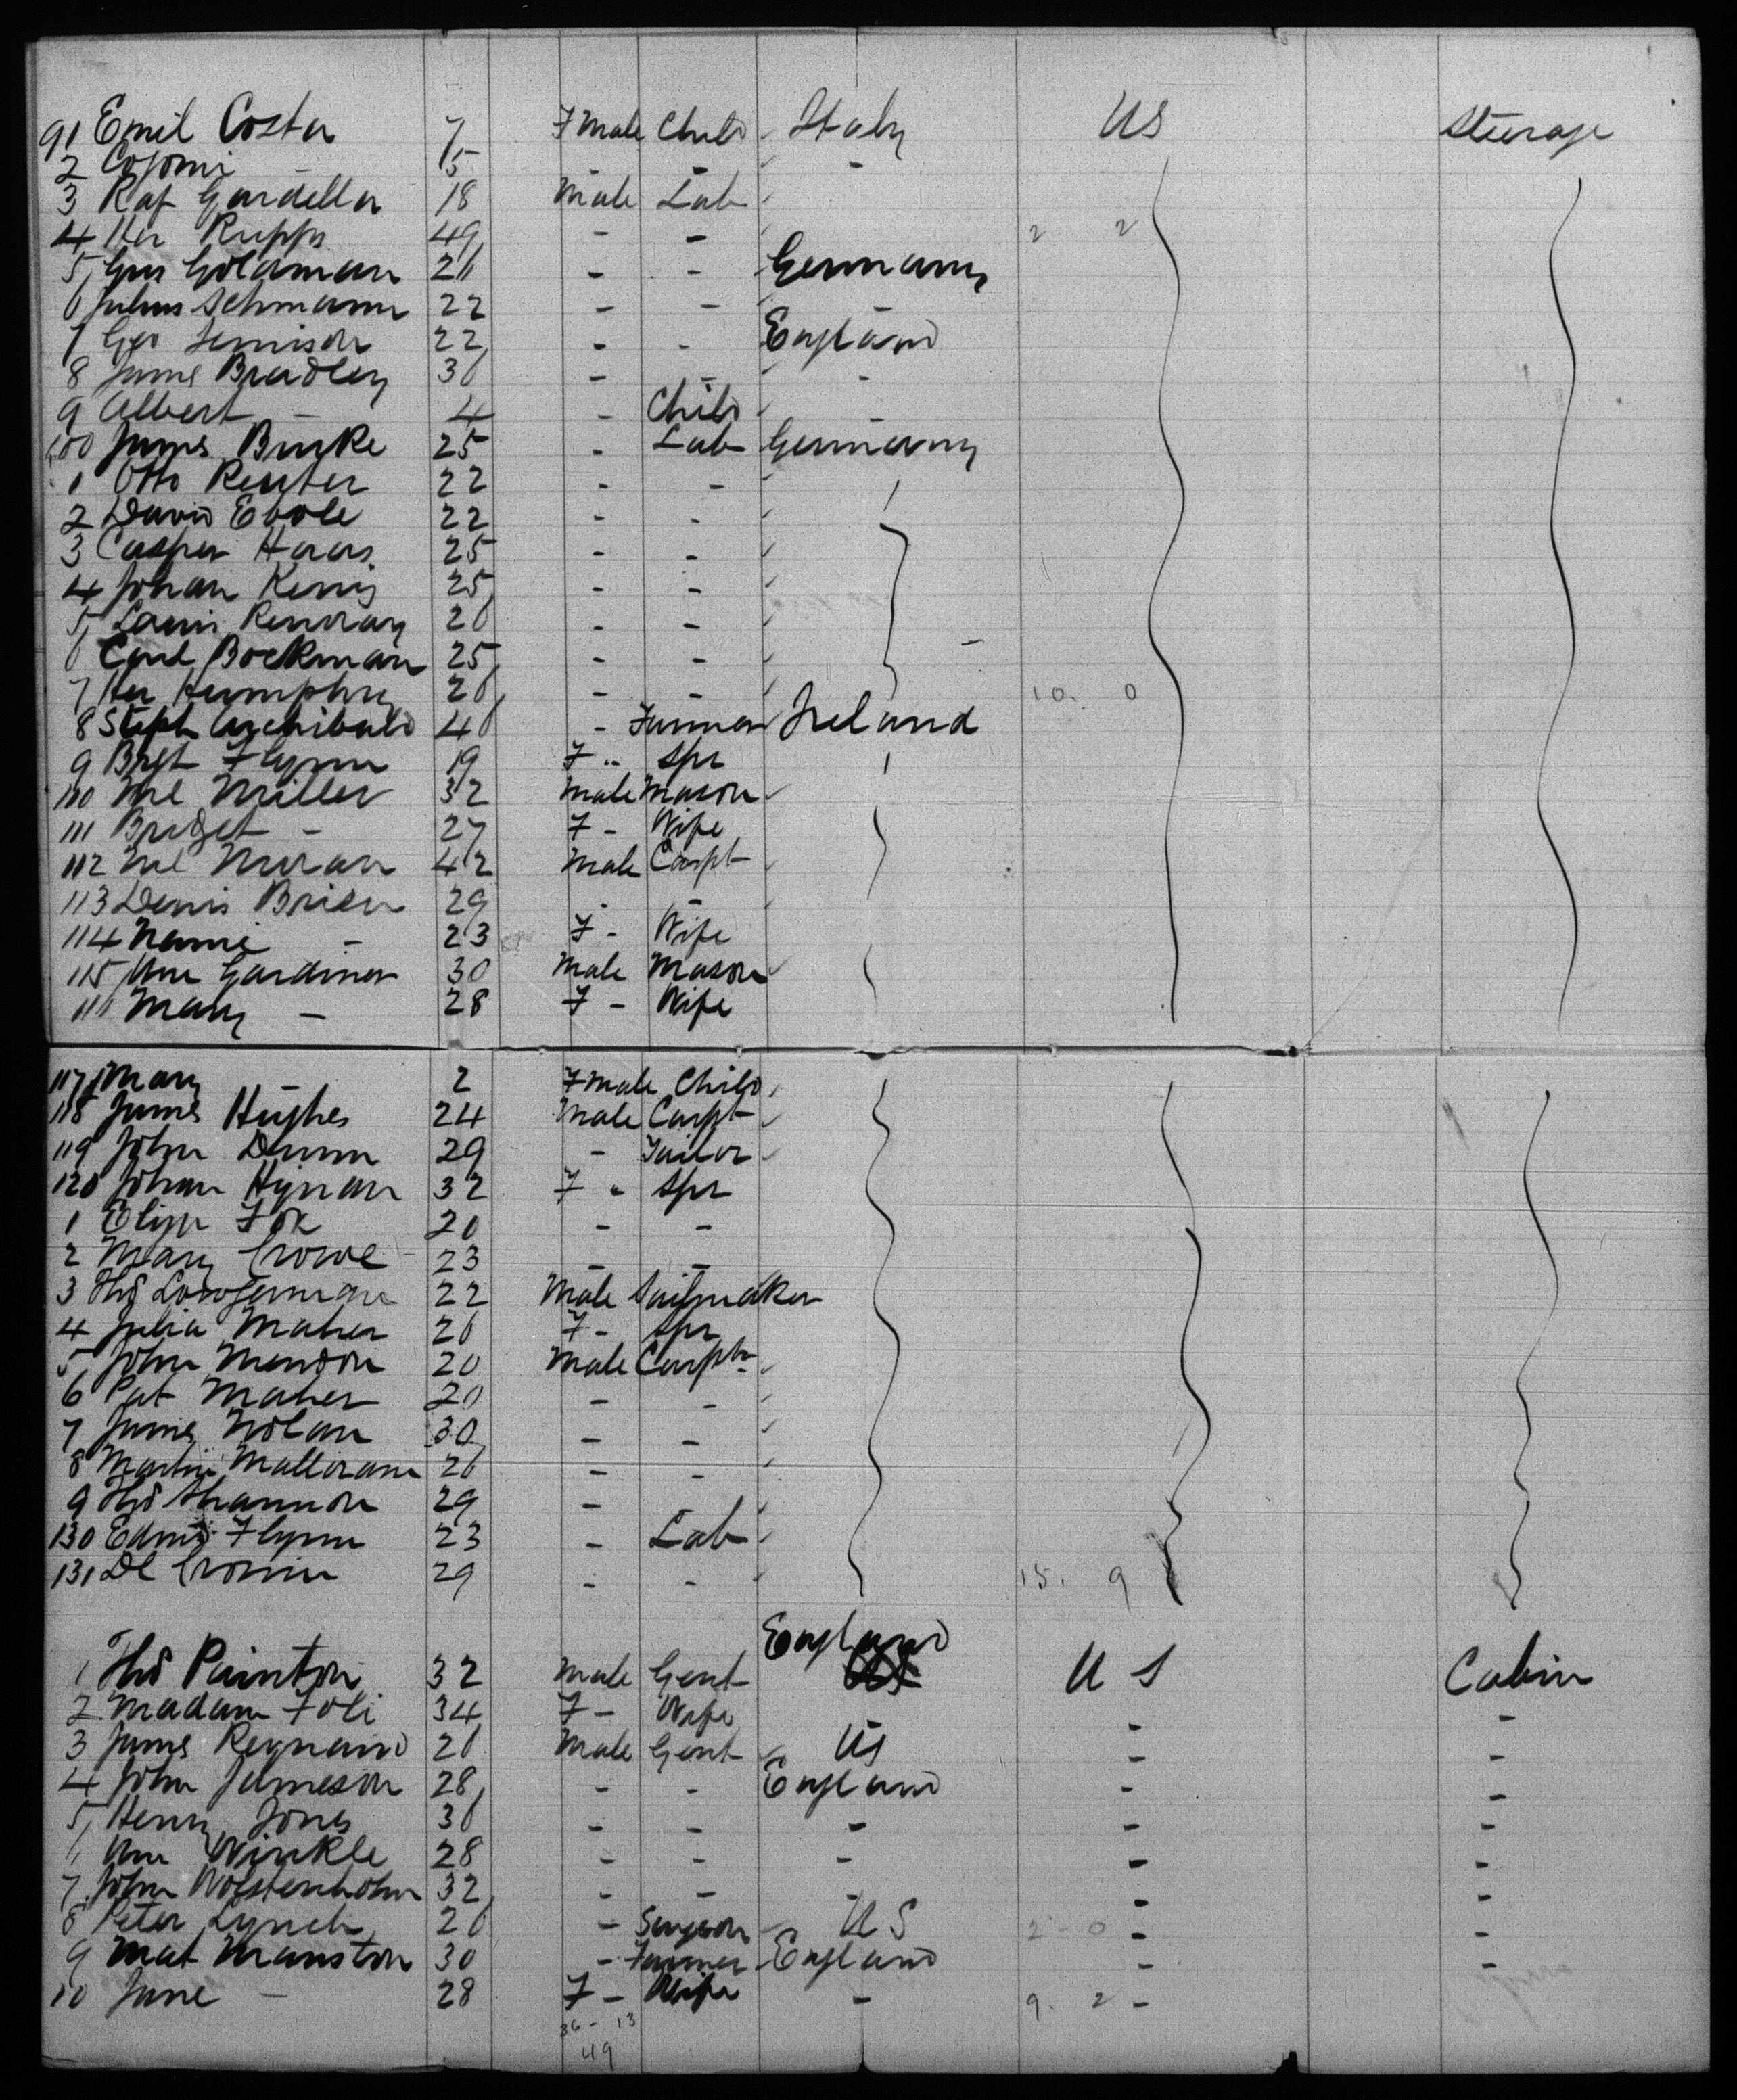 91 Emil Costa 7 Fmale Child Italy US Steerage
2 5 - - -
3 Raf Gardella 18 Male Lab
4 Her Rupps 49 - - 2 2
5 Gus Goldman 26 - - Germany
6 Julius Schmann 22 - -
7 Geo Jennison 22 - - England
8 James Bradley 36 - - -
9 Albert - 4 - Child -
100 James Burke 25 - Lab Germany
1 Otto Reuter 22 - -
2 David Ebole 22 - -
3 Casper Haras 25 - -
4 Johan Kenig 25 - -
5 Louis 26 - -
6 Carl Bockman 25 - -
7 Her Humphry 26 - - 10. 0
8 Steph Archibald 46 - Farmer Ireland
9 Bryt Flynn 19 F " Spr
110 Ml Miller 32 Male Mason
111 Bridget - 27 F - Wife
112 Ml Moran 42 Male Carpt
113 Denis Brien 29 - -
114 Namie - 23 F - Wife
115 Wm Gardiner 30 Male Mason
116 Mary - 28 F - Wife
117 Mary - 2 Fmale Child
118 James Hughes 24 Male Carpt
119 John Dunn 29 - Tailor
120 Johan Hynan 32 F " Spr
1 Eliza Fox 20 - -
2 Mary Crowe 23 - -
3 Thos 22 Male Sailmaker
4 Julia Maher 26 F - Spr
5 John 20 Male Carptr
6 Pat Maher 20 - -
7 James Nolan 30 - -
8 Martin 26 - -
9 Thos Shannon 29 -
130 Edmd Flynn 23 - Lab
131 Dl Cronin 29 - - 15. 9
England
1 Thos Painton 32 Male Gent U S Cabin
2 Madam Foli 34 F - Wife - - -
3 James Reynard 26 Male Gent US - -
4 John Jameson 28 - - England - -
5 Henry Jones 36 - - - - -
6 Wm Winkle 28 - - - - -
7 John Wolstenholm 32 - - - - -
8 Peter Lynch 26 - Surgeon US 2 - 0 - -
9 Mat Manston 30 - Farmer England - -
10 Jane - 28 F - Wife - 9. 2 -
36 - 13
49